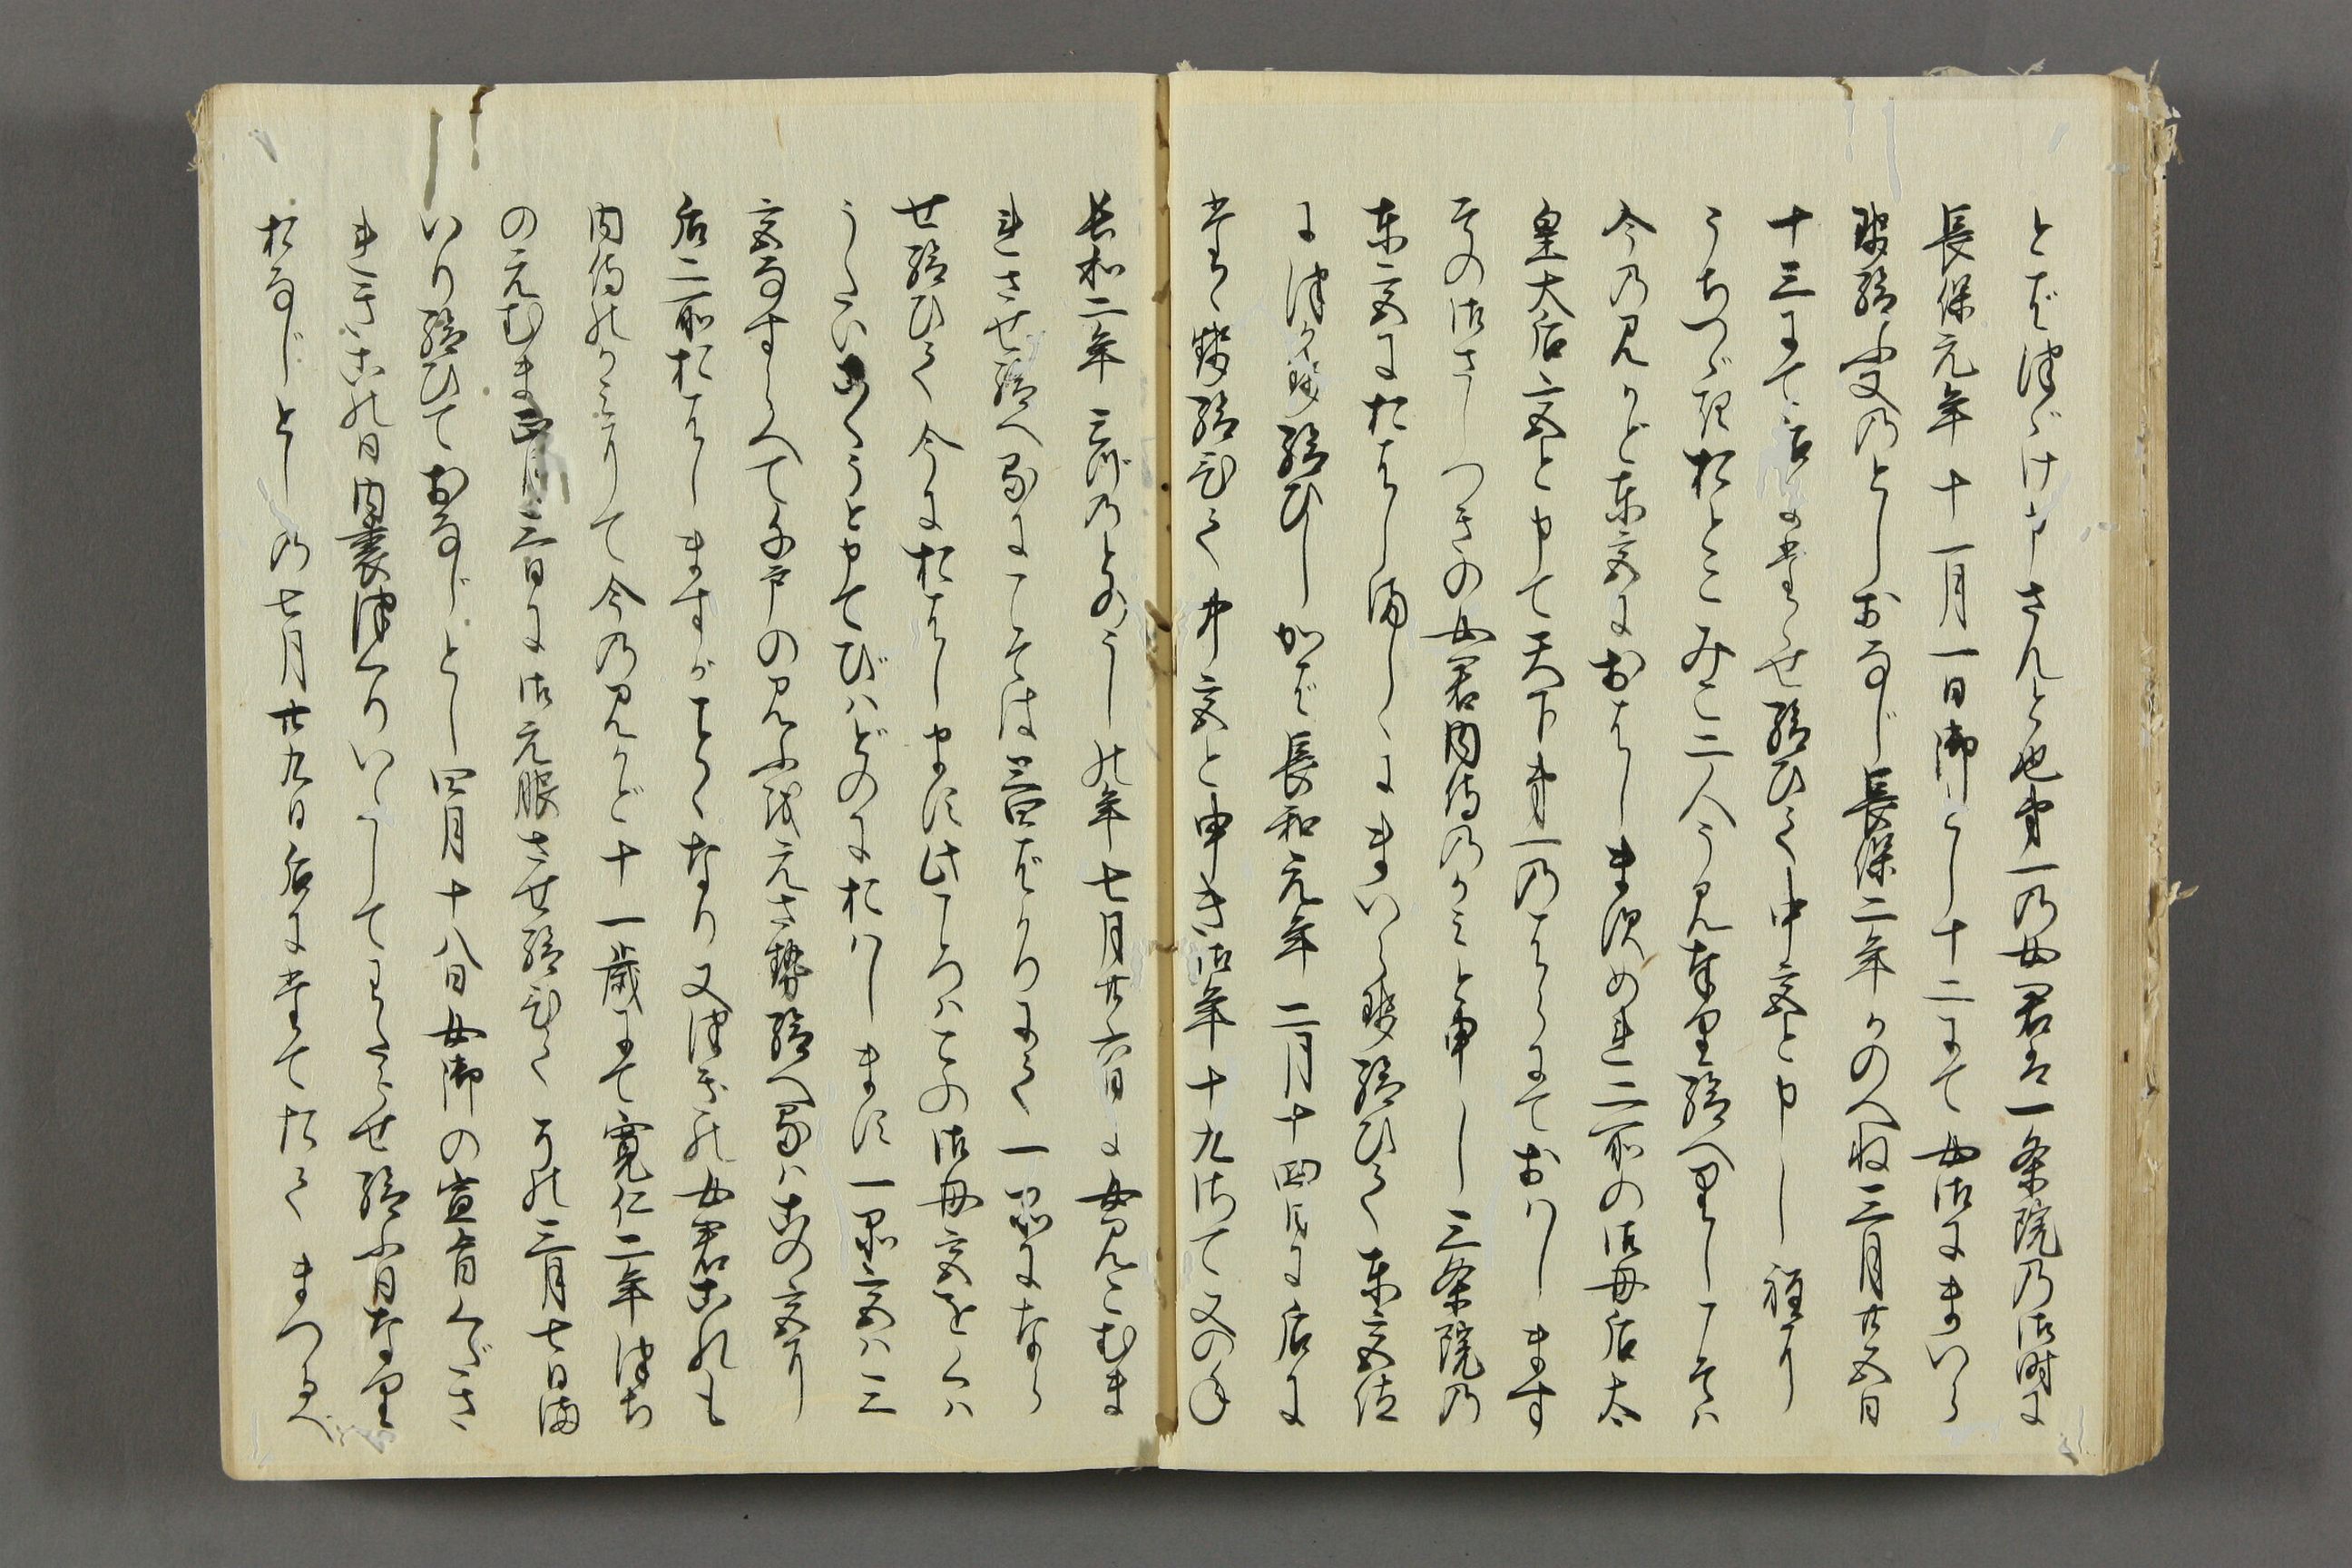 とぞつゞけ申さんと也第一の女君は一条院の御時に
長保元年十一月一日御とし十二にて女御にまいら
勢給ふ又のとしおなじ長保二年かのへね三月廿五日
十三にて后にたゝせ給ひて中宮と申し程に
うちつゞきおとこみこ二人うみ奉り給へりしこそは
今のみかど東宮におはしますめれ二所の御母后太
皇大后宮と申て天下第一のはゝにておはします
その御さしつぎの女君内侍のかみと申し三条院の
東宮におはしましゝにまいらせ給ひて東宮位
につかせ給ひしかば長和元年二月十四日に后に
たゝせ給ひて中宮と申き御年十九さて又の年
長和二年みづのとのうしの年七月廿六日に女みこむま
れさせ給へるにこそは三四ばかりにて一品になら
せ給ひて今におはします此ころはこの御母宮をくは
うたいこうくうと申てびはどのにおはします一品宮は三
宮になずらへて千戸のみふを元させ給へるはこの宮に
后二所おはしますがごとくなり又つぎの女君これも
内侍のかみにて今のみかど十一歳にて寛仁二年つち
のえむま正月三日に御元服させ給ひてその三月七日ま
いり給ひておなじとし四月十八日女御の宣旨くださ
れきこの日内裏つくりいだしてわたらせ給ふ日なり
おなじとしの七月廿九日后にたてたてまつるべ